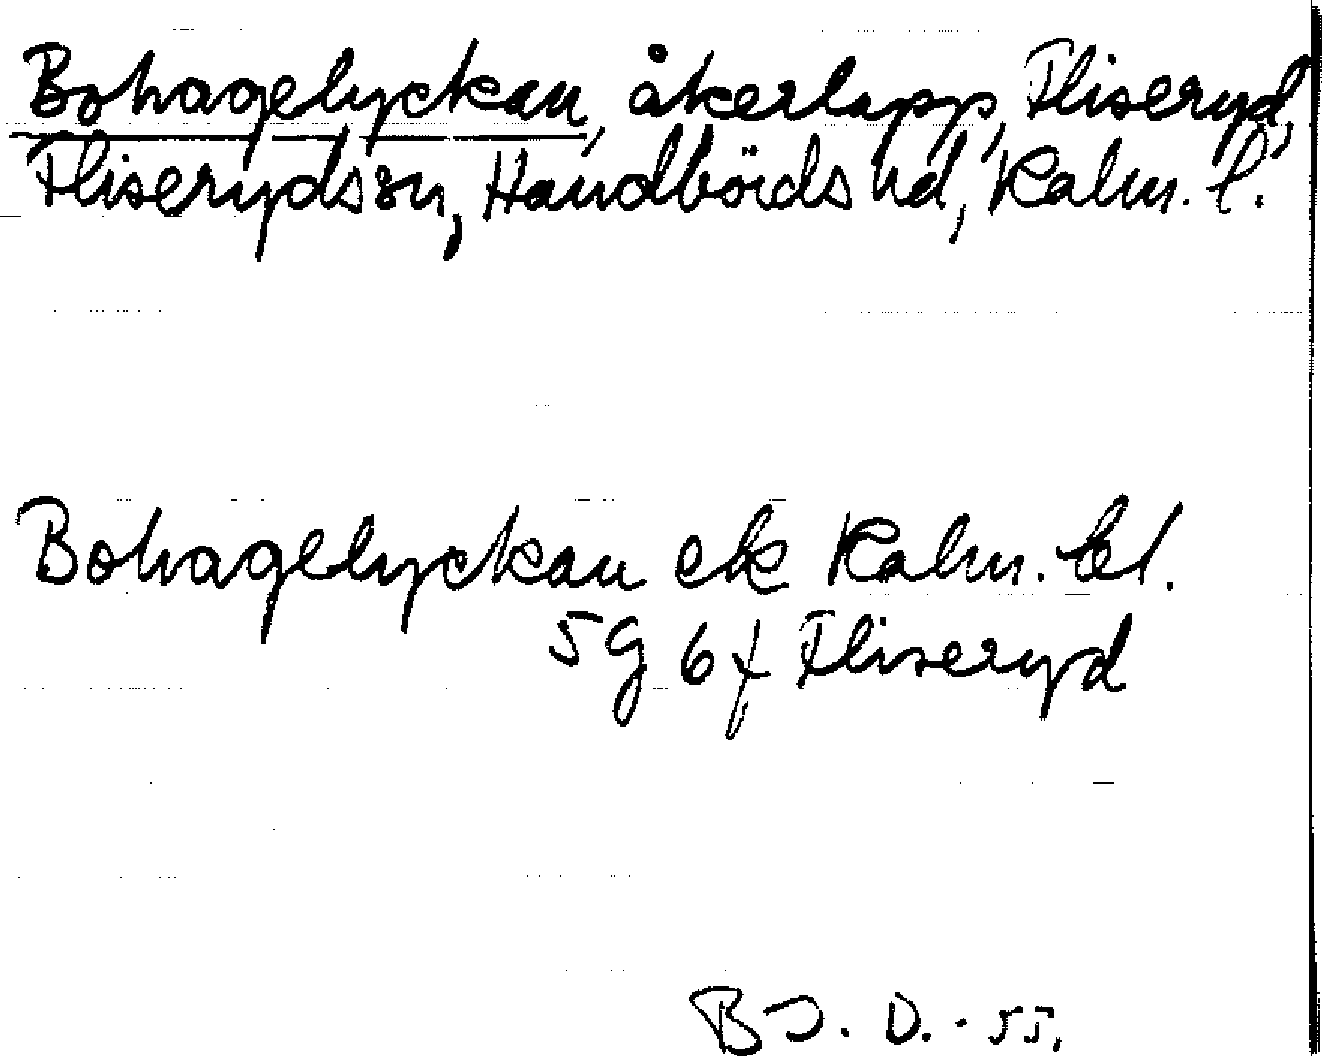 Bohagelyckan, åkerlapp, Fliseryd,
Fliseryds sn, Handbörds hd, Kalm. l.
Bohagelyckan ek Kalm. bl.
5g 6f Fliseryd
B J. D. - 55.